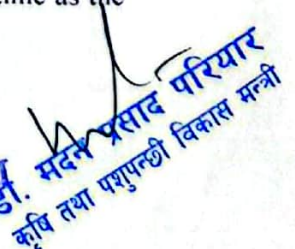 as the
डा. मदन प्रसाद परियार
कृषि तथा पशुपन्छी विकास मन्त्री